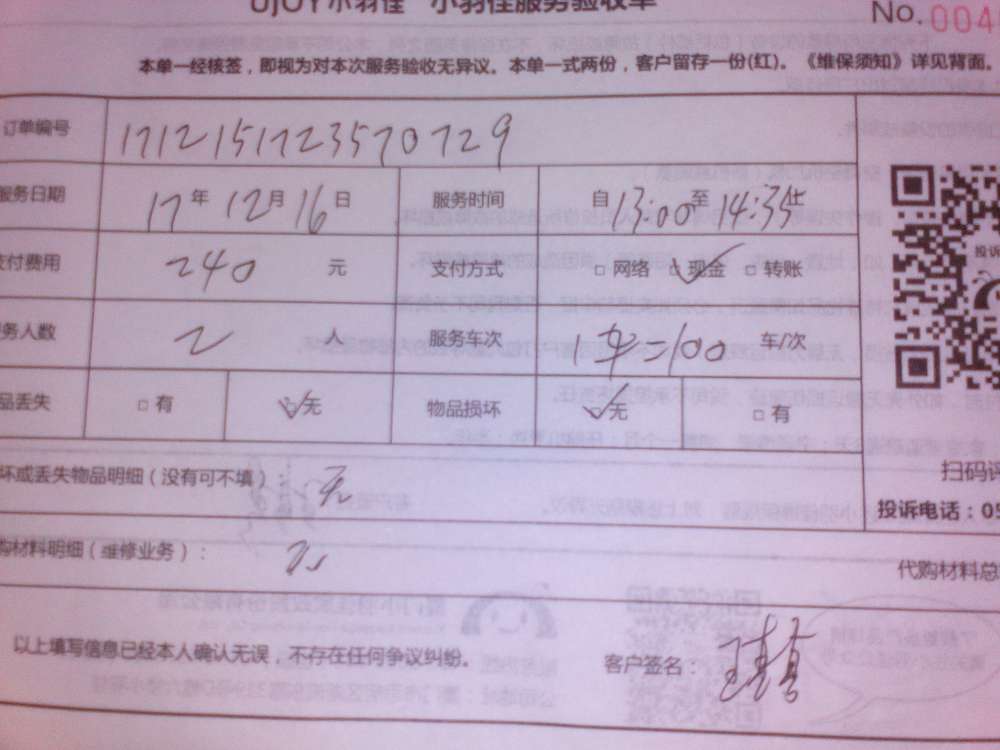 UjOY小羽佳 小羽佳服务验收单
No.004
本单一经核签，即视为对本次服务验收无异议。本单一式两份，客户留存一份(红)。《维保须知》详见背面。
订单编号 1712151723570729
服务日期 17年12月16日 服务时间 自13:00至14:35止
支付费用 240 元 支付方式 □网络 ☑现金 □转账
服务人数 2 人 服务车次 1车=100 车/次
品丢失 □有 ☑无 物品损坏 ☑无 □有
坏或丢失物品明细（没有可不填）：无
扫码评
投诉电话：05
购材料明细（维修业务）：
代购材料总
以上填写信息已经本人确认无误，不存在任何争议纠纷。 客户签名：